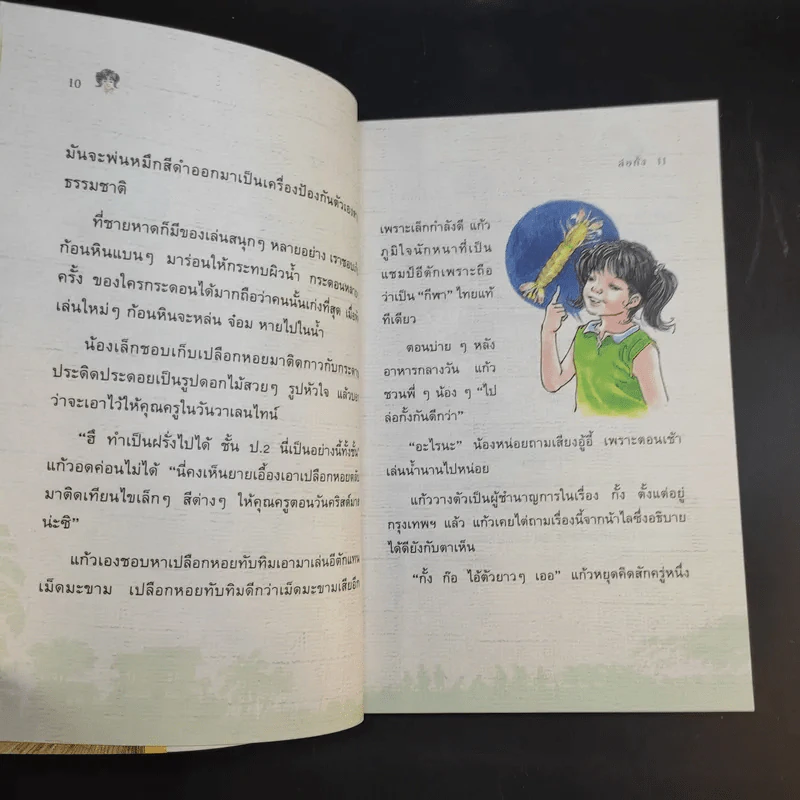 10
มันจะพ่นหมึกสีดำออกมาเป็นเครื่องป้องกันตัวเอง
ธรรมชาติ
ที่ชายหาดก็มีของเล่นสนุกๆ หลายอย่าง เราชอบ
ก้อนหินแบนๆ มาร่อนให้กระทบผิวน้ำ กระดอนหลาย
ครั้ง ของใครกระดอนได้มากถือว่าคนนั้นเก่งที่สุด เมื่อ
เล่นใหม่ๆ ก้อนหินจะหล่น จ๋อม หายไปในน้ำ
น้องเล็กชอบเก็บเปลือกหอยมาติดกาวกับกระดาษ
ประดิดประดอยเป็นรูปดอกไม้สวยๆ รูปหัวใจ แล้วบอก
ว่าจะเอาไว้ให้คุณครูในวันวาเลนไทน์
“ฮึ ทำเป็นฝรั่งไปได้ ชั้น ป.2 นี่เป็นอย่างนี้ทั้งชั้น”
แก้วอดค่อนไม่ได้ “นี่คงเห็นยายเอื้องเอาเปลือกหอย
มาติดเทียนไขเล็กๆ สีต่างๆ ให้คุณครูตอนวันคริสต์มาส
น่ะซิ”
แก้วเองชอบหาเปลือกหอยทับทิมเอามาเล่นอีตักแทน
เม็ดมะขาม เปลือกหอยทับทิมดีกว่าเม็ดมะขามเสียอีก
11
เพราะเล็กกำลังดี แก้ว
ภูมิใจนักหนาที่เป็น
แชมป์อีตักเพราะถือ
ว่าเป็น “กีฬา” ไทยแท้
ทีเดียว
ตอนบ่ายๆ หลัง
อาหารกลางวัน แก้ว
ชวนพี่ๆ น้องๆ “ไป
ล่อกั้งกันดีกว่า”
“อะไรนะ” น้องหน่อยถามเสียงอู้อี้ เพราะตอนเช้า
เล่นน้ำนานไปหน่อย
แก้ววางตัวเป็นผู้ชำนาญการในเรื่อง กั้ง ตั้งแต่อยู่
กรุงเทพฯ แล้ว แก้วเคยไต่ถามเรื่องนี้จากน้าไลซึ่งอธิบาย
ได้ดียังกับตาเห็น
“กั้ง ก๊อ ไอ้ตัวยาวๆ เออ” แก้วหยุดคิดสักครู่หนึ่ง